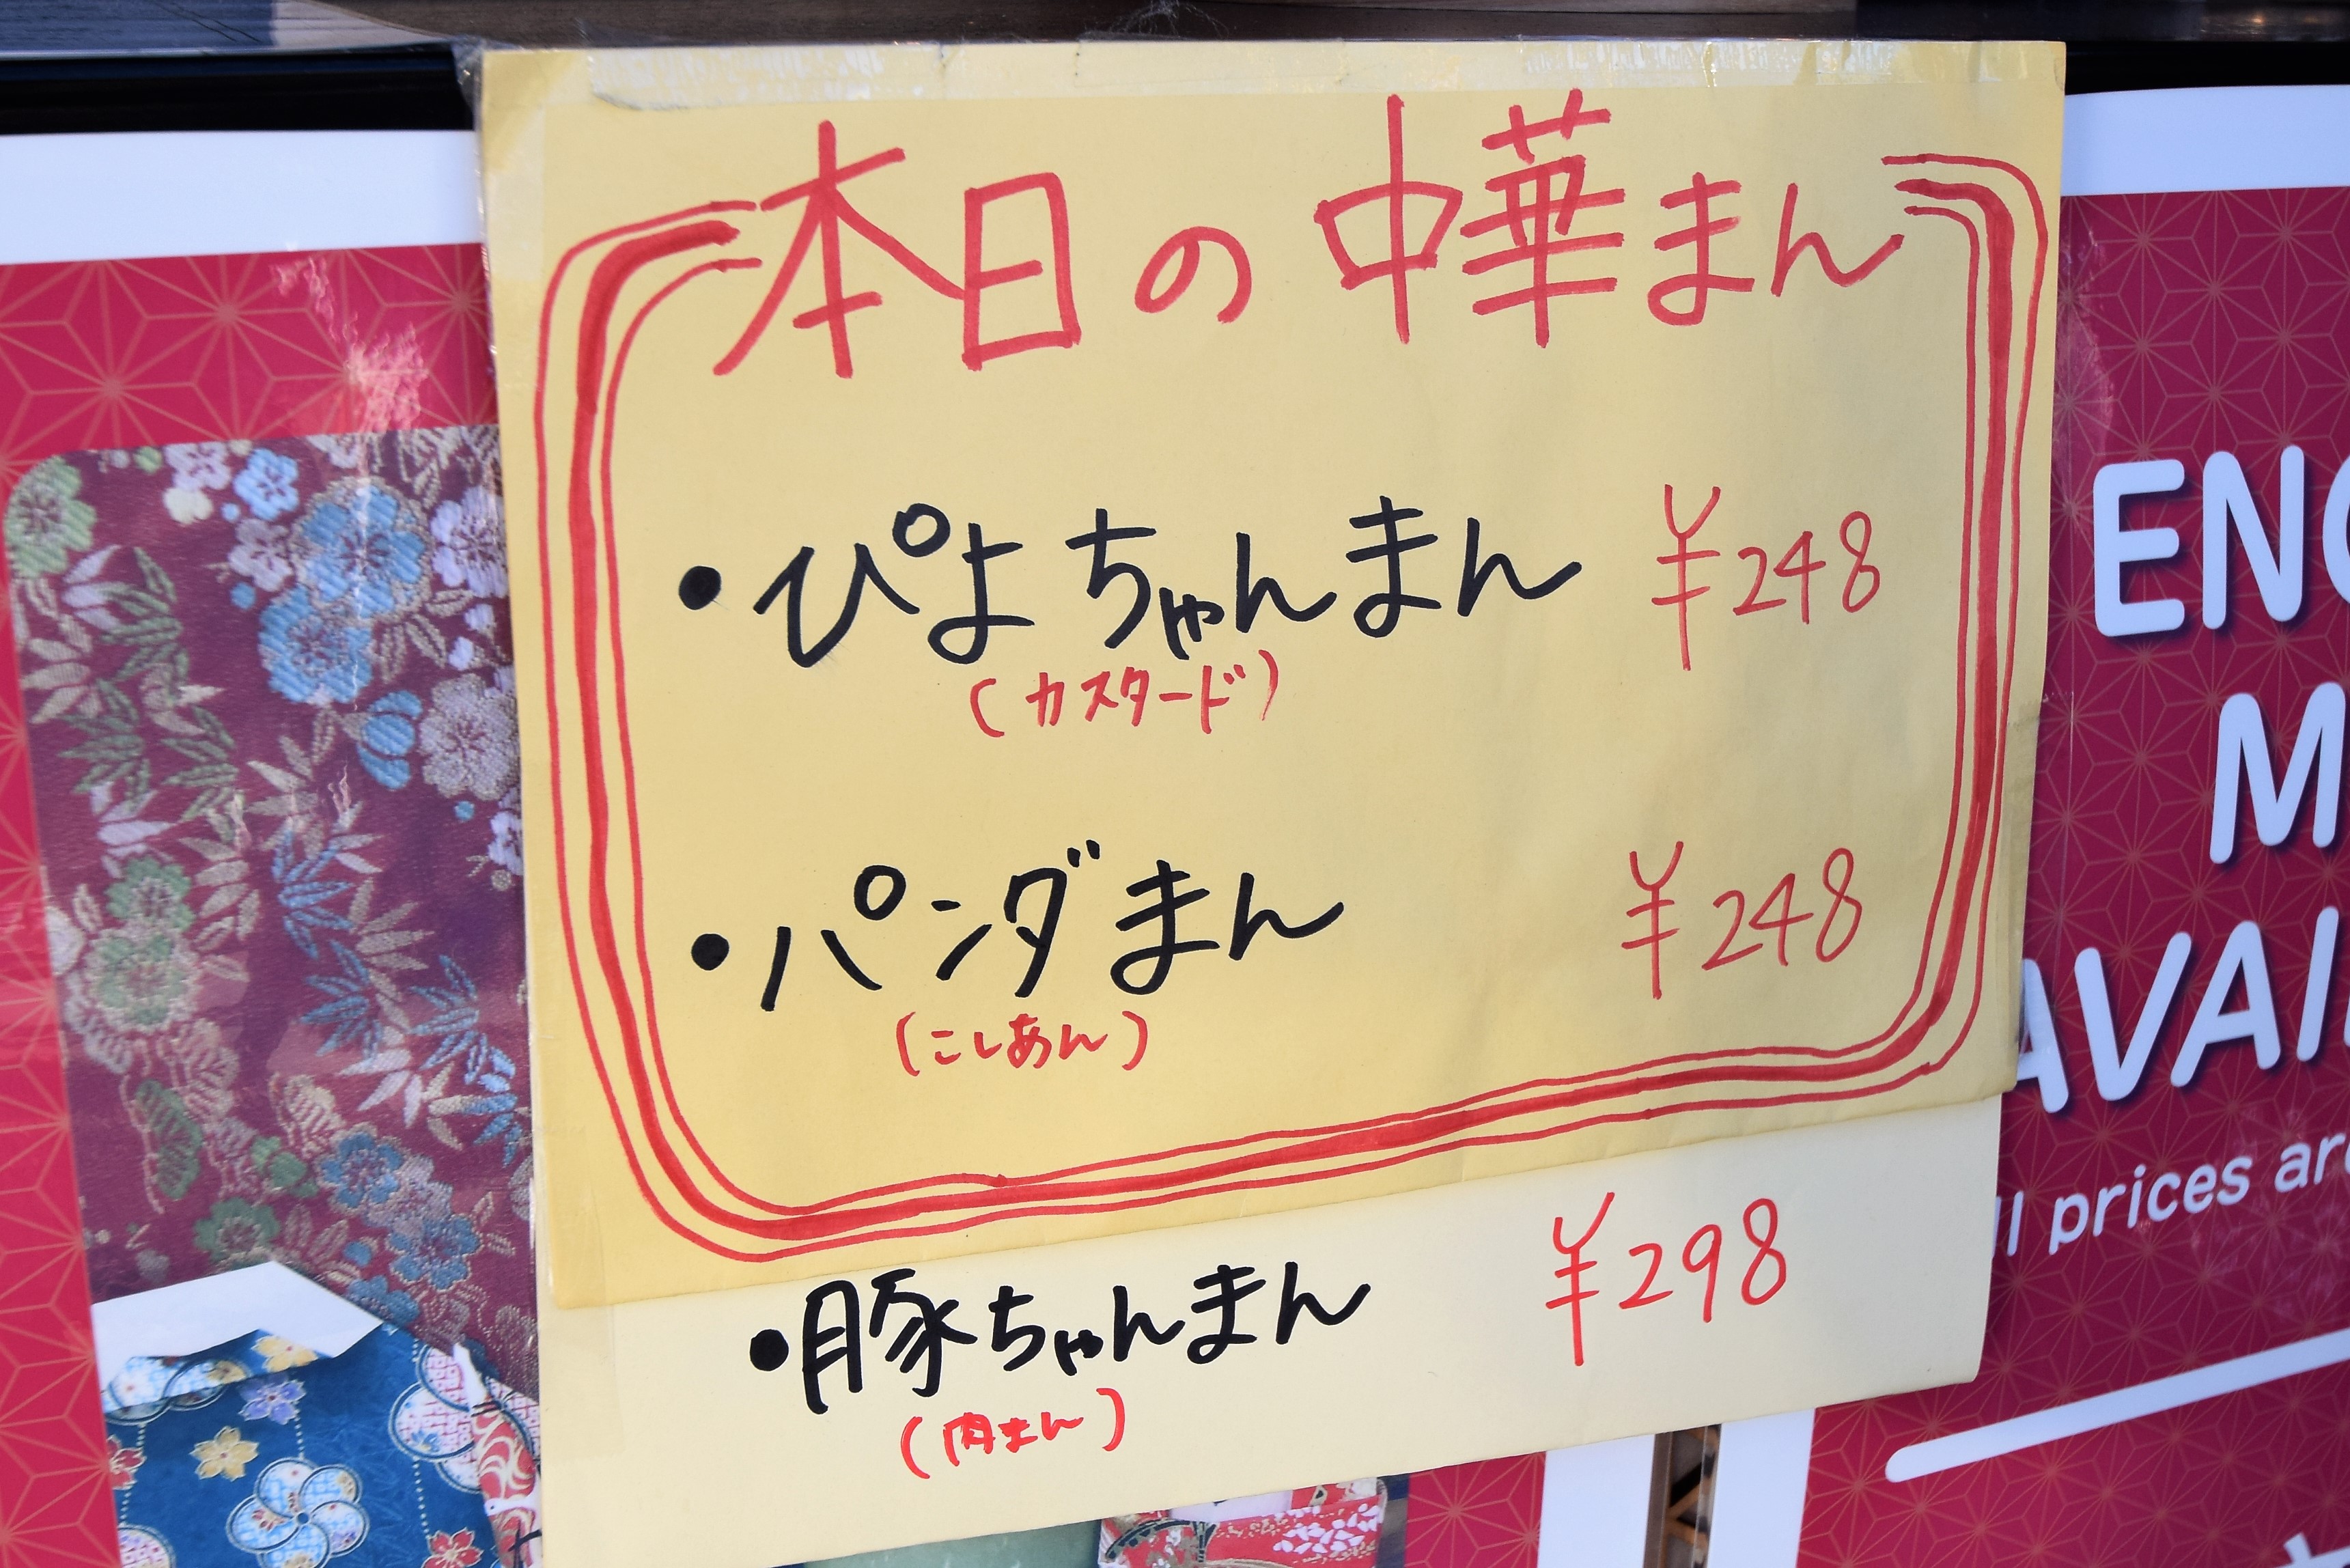 本日の中華まん
・ぴよちゃんまん ¥248
(カスタード)
・パンダまん ¥248
(こしあん)
・豚ちゃんまん ¥298
(肉まん)
prices